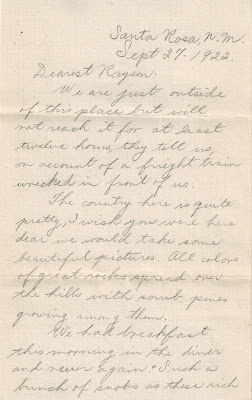 Santa Rosa, N.M.
Sept 27-1922.
Dearest Rayson:
We are just outside
of this place but will
not reach it for at least
twelve hours, they tell us,
on account of a freight train
wrecked in front of us.
The country here is quite
pretty, I wish you were here
dear we would take some
beautiful pictures. All colors
of great rocks spread over
the hills with scrub pines
growing among them.
We had breakfast
this morning in the diner
and never again. Such a
bunch of snobs as these rich